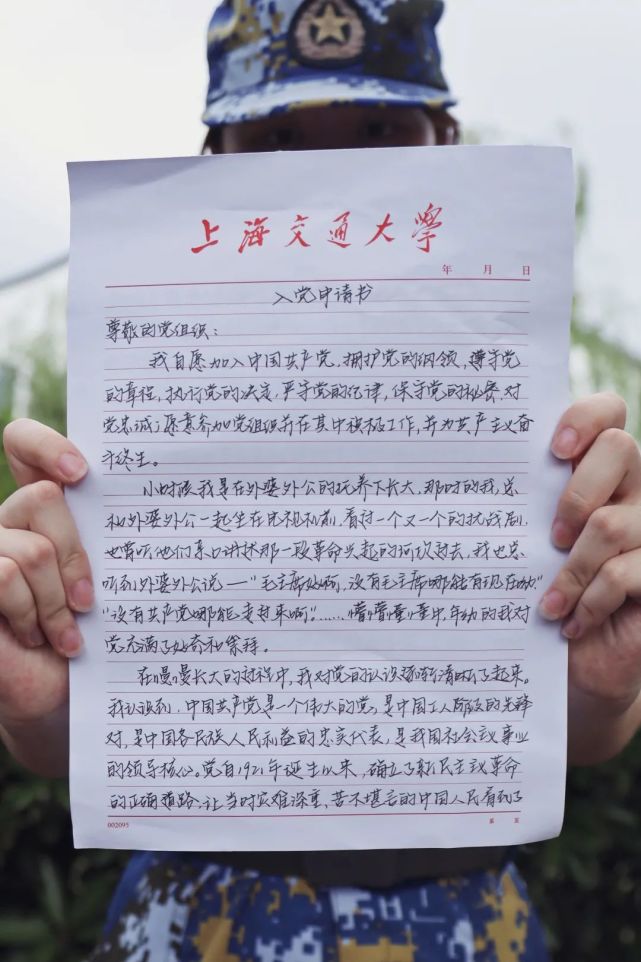 上海交通大学
年 月 日
入党申请书
尊敬的党组织：
我自愿加入中国共产党，拥护党的纲领，遵守党
的章程，执行党的决定，严守党的纪律，保守党的秘密，对
党忠诚；愿意参加党组织并在其中积极工作，并为共产主义奋
斗终生。
小时候我是在外婆外公的抚养下长大，那时的我，总
和外婆外公一起坐在电视机前，看过一个又一个的抗战剧，
也曾听他们亲口讲述那一段革命兴起的过去，我也总
听到外婆外公说——“毛主席好啊，没有毛主席哪能有现在呦”
“没有共产党哪能走过来啊”……懵懵懂懂中，年幼的我对
党充满了好奇和崇拜。
在慢慢长大的过程中，我对党的认识逐渐清晰了起来。
我认识到，中国共产党是一个伟大的党，是中国工人阶级的先锋
队，是中国各民族人民利益的忠实代表，是我国社会主义事业
的领导核心。党自1921年诞生以来，确立了新民主主义革命
的正确道路，让当时灾难深重，苦不堪言的中国人民看到了
002095
第 页